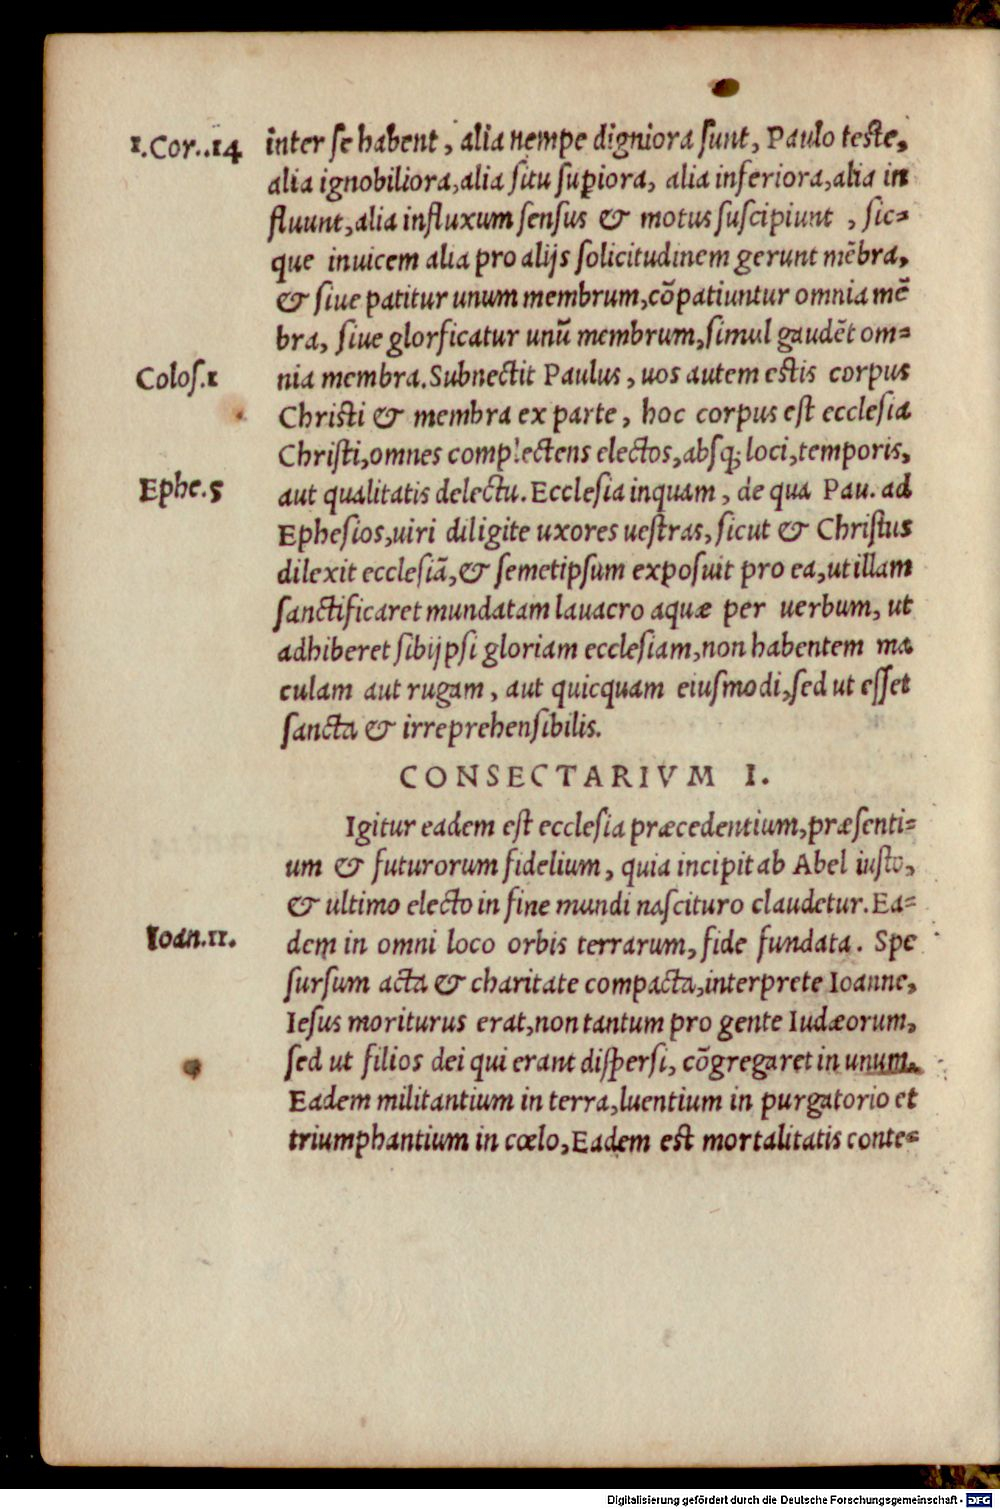 1.Cor..14 inter se habent, alia nempe digniora sunt, Paulo teste,
alia ignobiliora, alia situ suꝑiora, alia inferiora, alia in
fluunt, alia influxum sensus & motus suscipiunt , sic=
que inuicem alia pro alijs solicitudinem gerunt mēbra,
& siue patitur unum membrum, cōpatiuntur omnia mē
bra, siue glorficatur unū membrum, simul gaudēt om=
Colos.1 nia membra. Subnectit Paulus, uos autem estis corpus
Christi & membra ex parte, hoc corpus est ecclesia
Christi, omnes complectens electos, absq; loci, temporis,
Ephe.5 aut qualitatis delectu. Ecclesia inquam, de qua Pau. ad
Ephesios, uiri diligite uxores uestras, sicut & Christus
dilexit ecclesiā, & semetipsum exposuit pro ea, ut illam
sanctificaret mundatam lauacro aquæ per uerbum, ut
adhiberet sibijpsi gloriam ecclesiam, non habentem ma
culam aut rugam, aut quicquam eiusmodi, sed ut esset
sancta & irreprehensibilis.
CONSECTARIVM I.
Igitur eadem est ecclesia præcedentium, præsenti=
um & futurorum fidelium, quia incipit ab Abel iusto,
& ultimo electo in fine mundi nascituro claudetur. Ea=
Ioan.11. dem in omni loco orbis terrarum, fide fundata. Spe
sursum acta & charitate compacta, interprete Ioanne,
Iesus moriturus erat, non tantum pro gente Iudæorum,
sed ut filios dei qui erant dispersi, cōgregaret in unum.
Eadem militantium in terra, luentium in purgatorio et
triumphantium in cœlo, Eadem est mortalitatis conte=
Digitalisierung gefördert durch die Deutsche Forschungsgemeinschaft - DFG